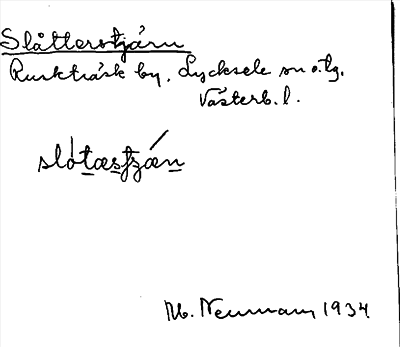 Slåtterstjärn
Ruskträsk by. Lycksele sn o. tg.
Västerb. l.
slótæstʒǽn
Neuman 1934